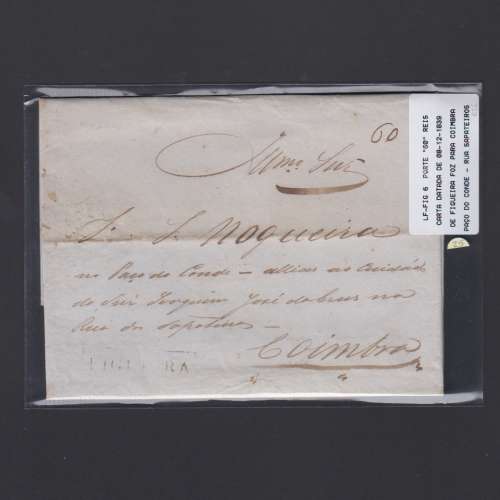 60
Illmo Snr
J. J. Nogueira
no Paço do Conde – allias ao Cuidado
do Snr Joaquim José da Cruz na
Rua dos Sapateiros –
Coimbra
LF-FIG 6 PORTE "60" REIS
CARTA DATADA DE 08-12-1839
DE FIGUEIRA FOZ PARA COIMBRA
PAÇO DO CONDE - RUA SAPATEIROS